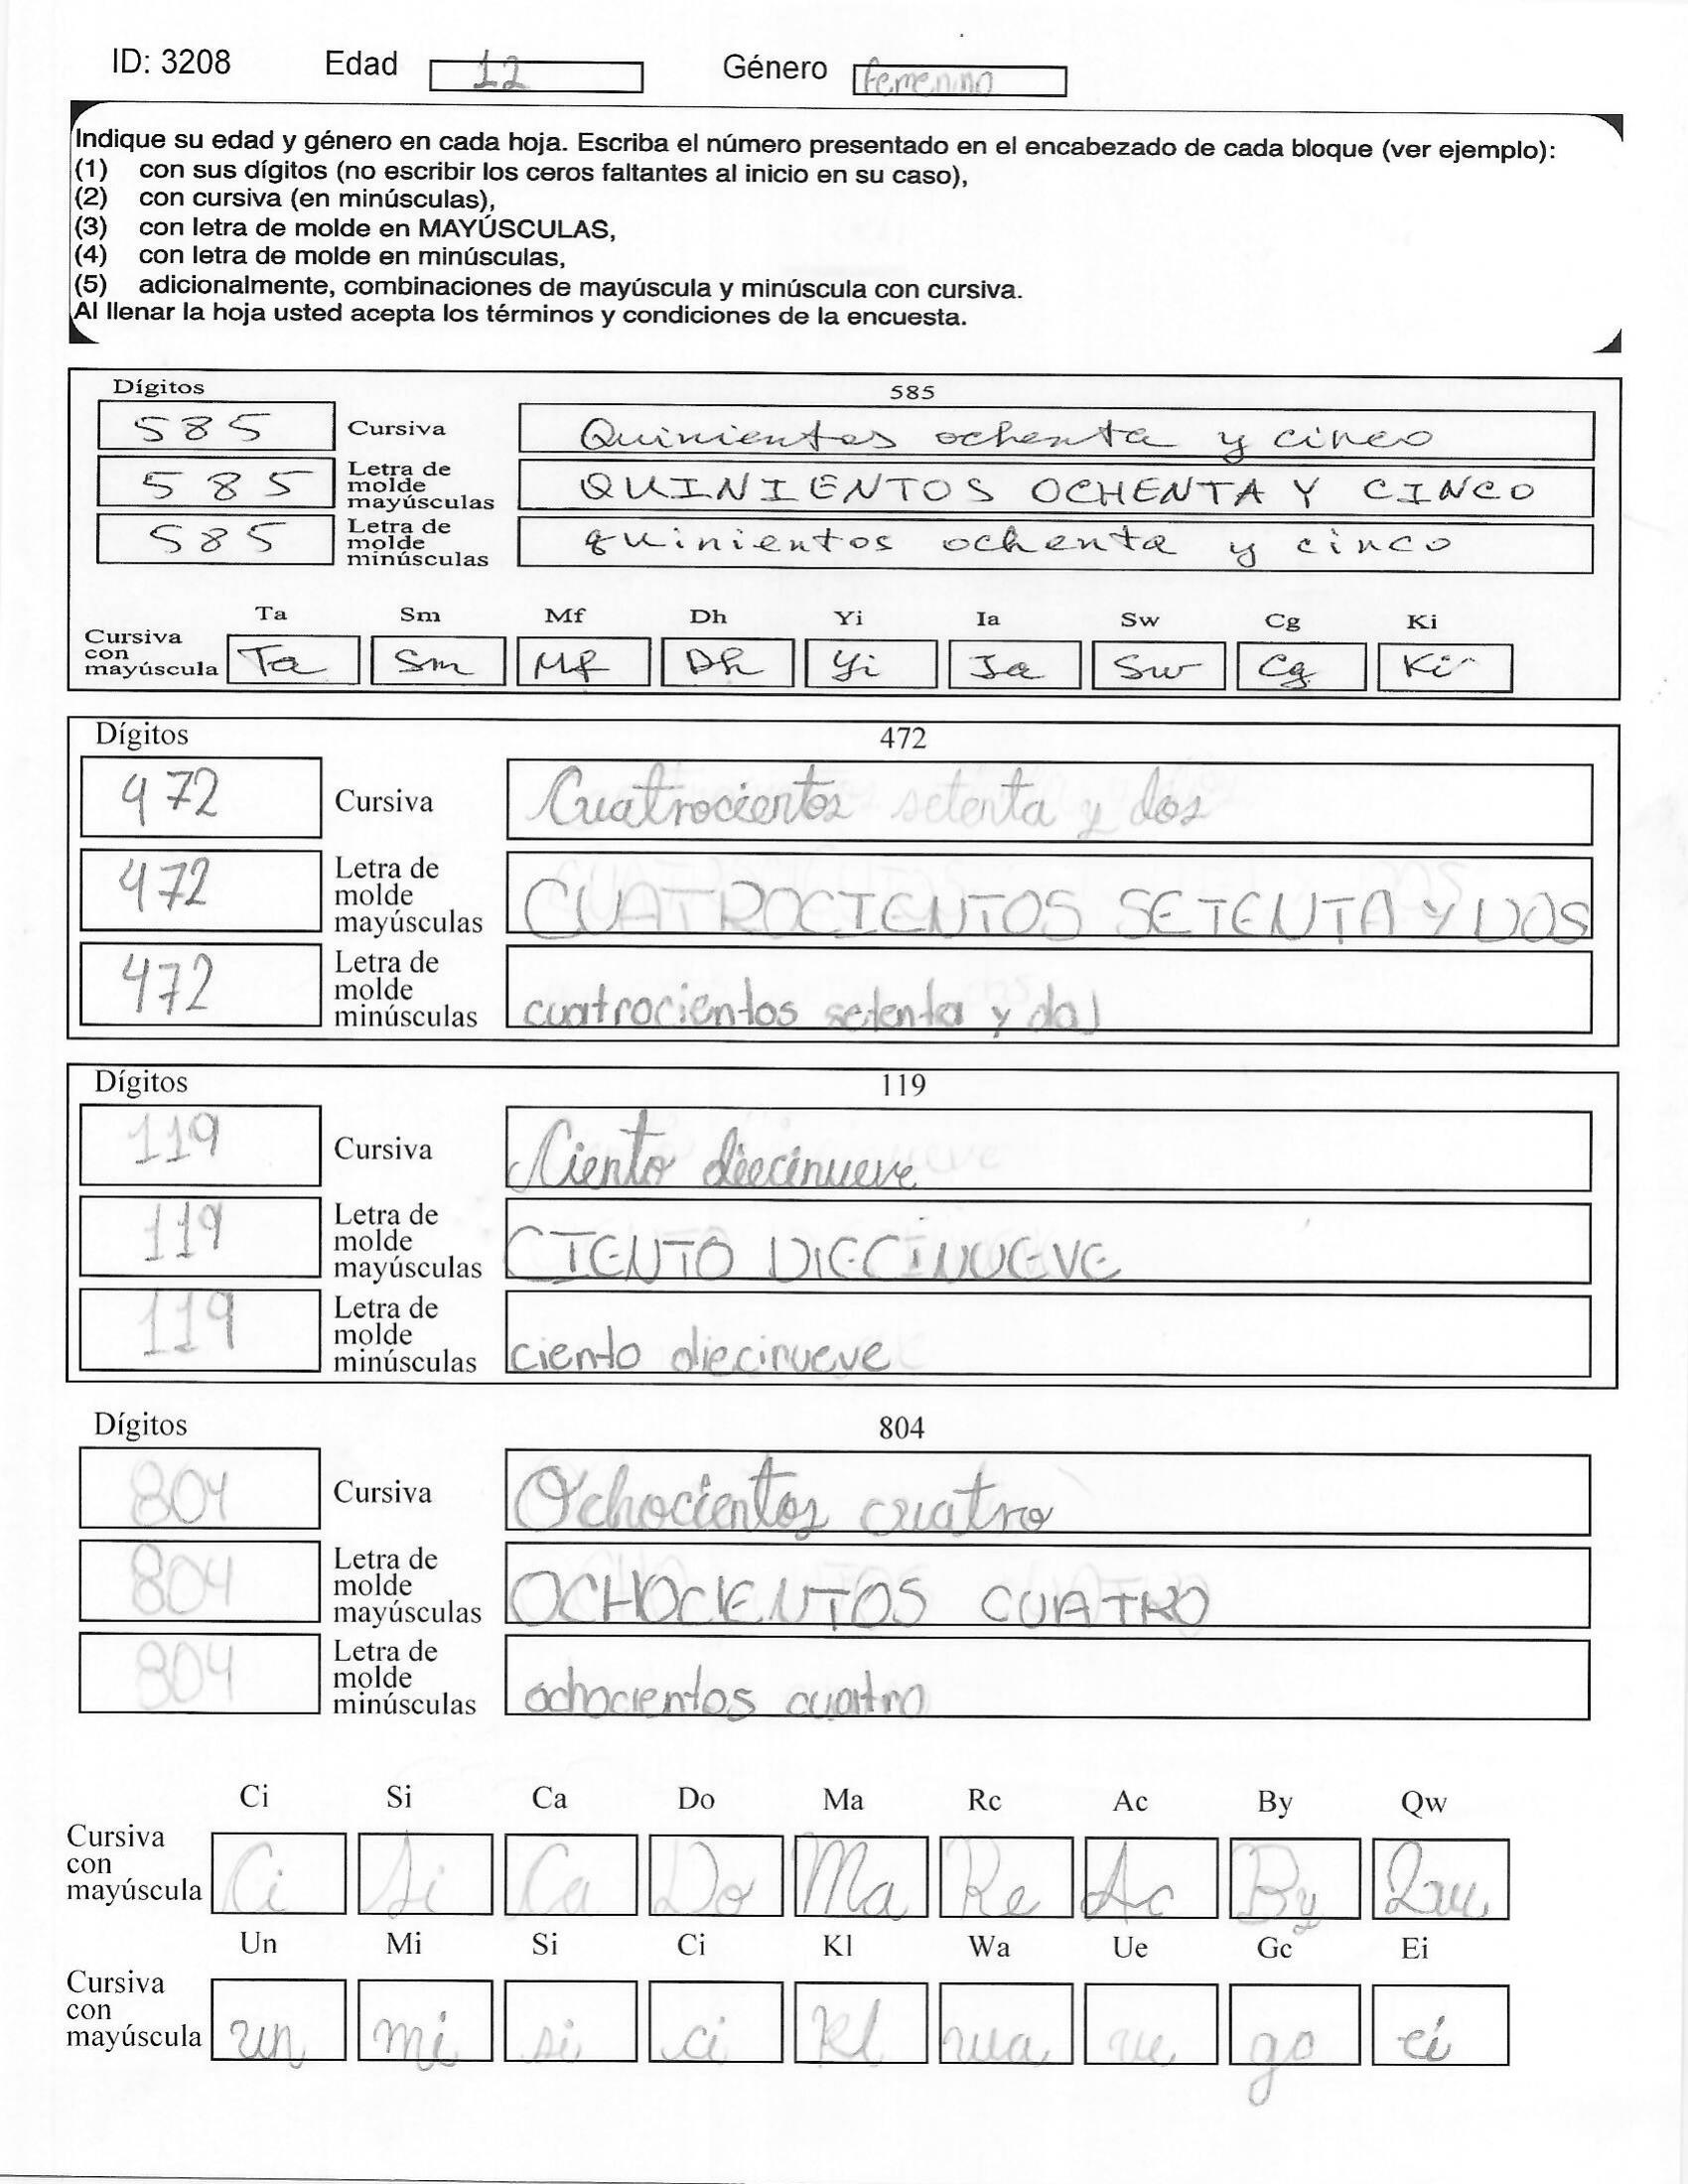 ID: 3208 Edad 12 Género femenino
Indique su edad y género en cada hoja. Escriba el número presentado en el encabezado de cada bloque (ver ejemplo):
(1) con sus dígitos (no escribir los ceros faltantes al inicio en su caso),
(2) con cursiva (en minúsculas),
(3) con letra de molde en MAYÚSCULAS,
(4) con letra de molde en minúsculas,
(5) adicionalmente, combinaciones de mayúscula y minúscula con cursiva.
Al llenar la hoja usted acepta los términos y condiciones de la encuesta.
Dígitos 585
585 Cursiva Quinientos ochenta y cinco
585 Letra de molde mayúsculas QUINIENTOS OCHENTA Y CINCO
585 Letra de molde minúsculas quinientos ochenta y cinco
Ta Sm Mf Dh Yi Ia Sw Cg Ki
Cursiva con mayúscula Ta Sm Mf Dh Yi Ia Sw Cg Ki
Dígitos 472
472 Cursiva Cuatrocientos setenta y dos
472 Letra de molde mayúsculas CUATROCIENTOS SETENTA Y DOS
472 Letra de molde minúsculas cuatrocientos setenta y dos
Dígitos 119
119 Cursiva Ciento diecinueve
119 Letra de molde mayúsculas CIENTO DIECINUEVE
119 Letra de molde minúsculas ciento diecinueve
Dígitos 804
804 Cursiva Ochocientos cuatro
804 Letra de molde mayúsculas OCHOCIENTOS CUATRO
804 Letra de molde minúsculas ochocientos cuatro
Ci Si Ca Do Ma Rc Ac By Qw
Cursiva con mayúscula Ci Si Ca Do Ma Re Ac By Qw
Un Mi Si Ci Kl Wa Ue Gc Ei
Cursiva con mayúscula un mi si ci Kl wa ue go ei